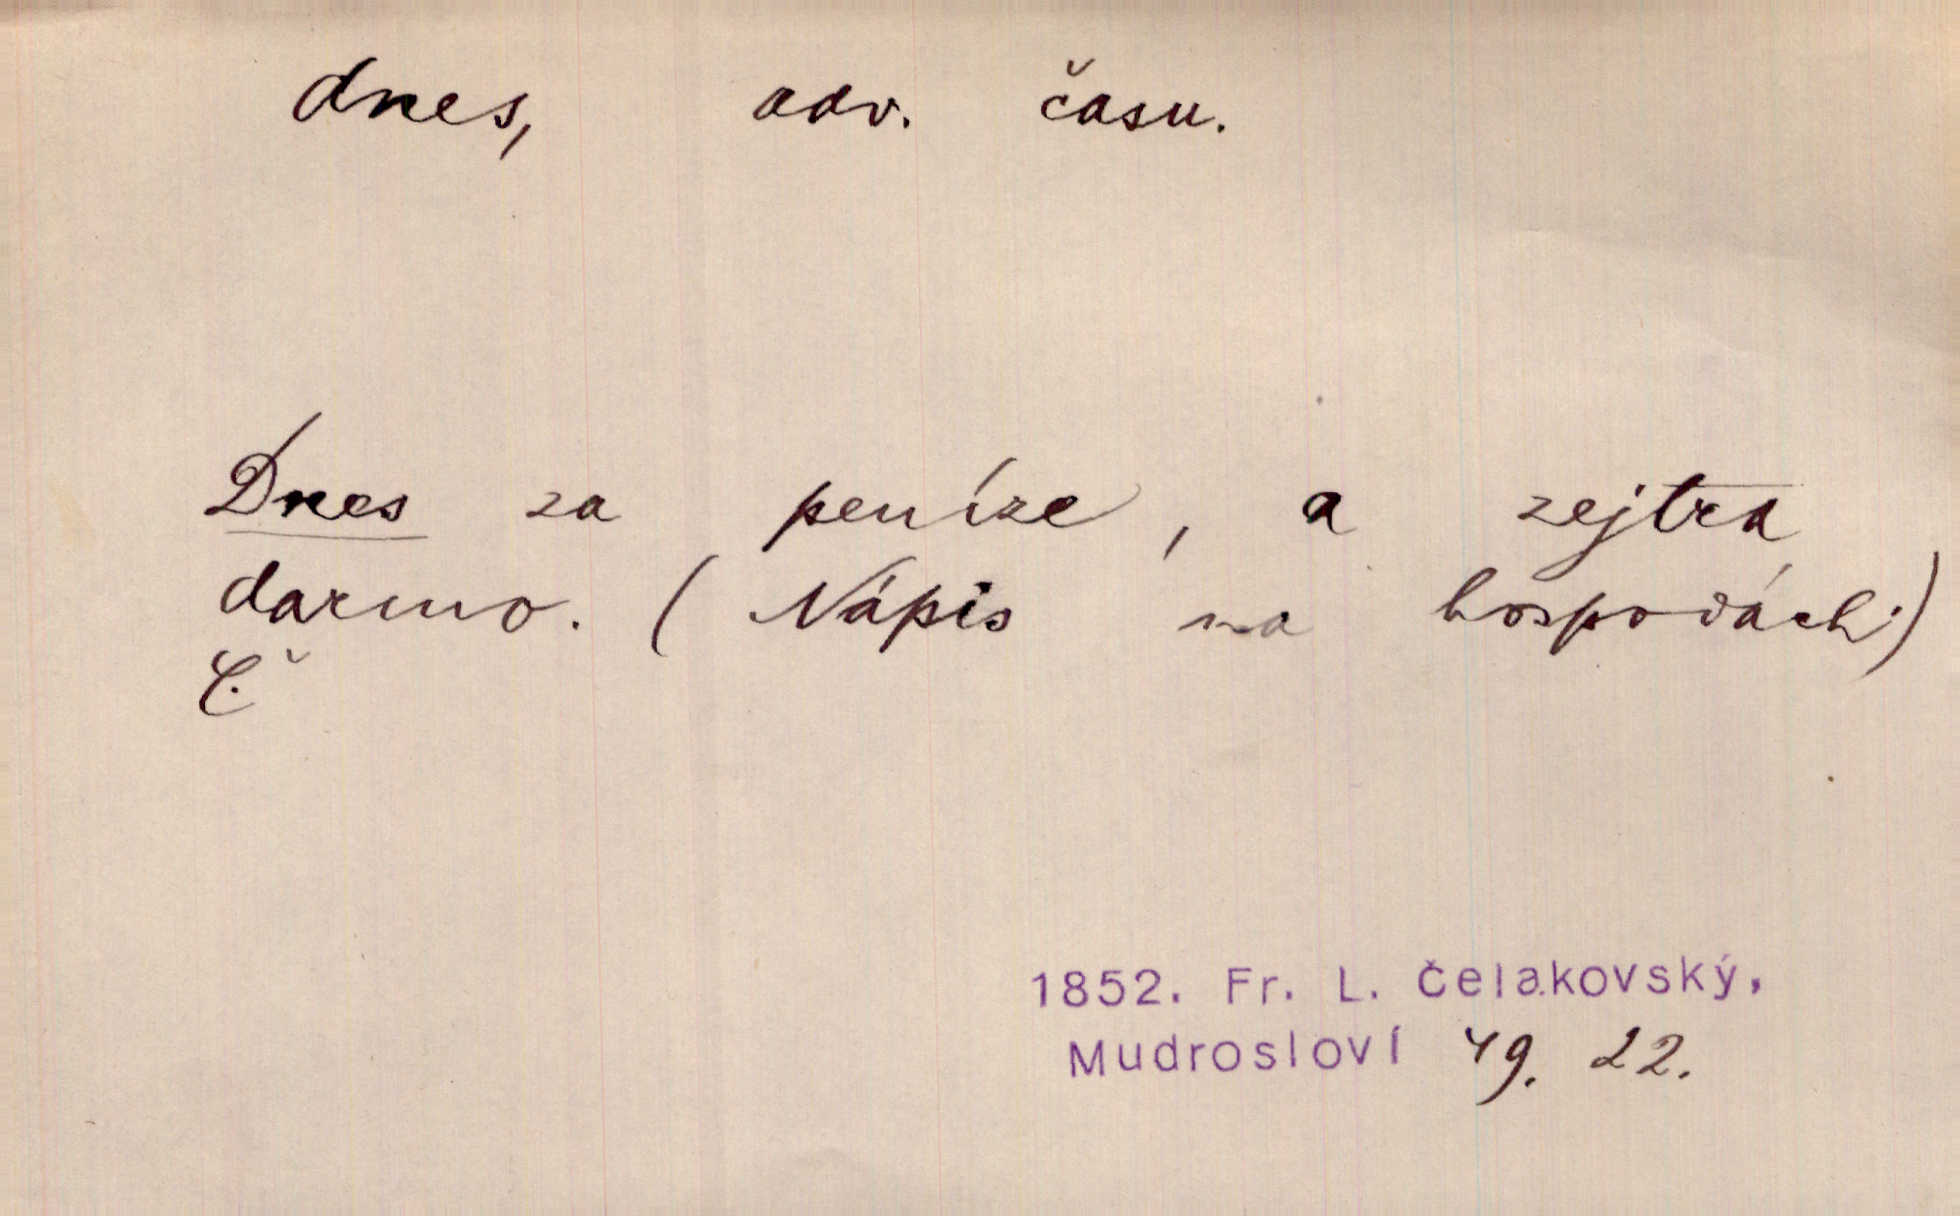 dnes, adv. času.
Dnes za peníze, a zejtra
darmo. (Nápis na hospodách.)
Č.
1852. Fr. L. Čelakovský,
Mudrosloví 49. 22.